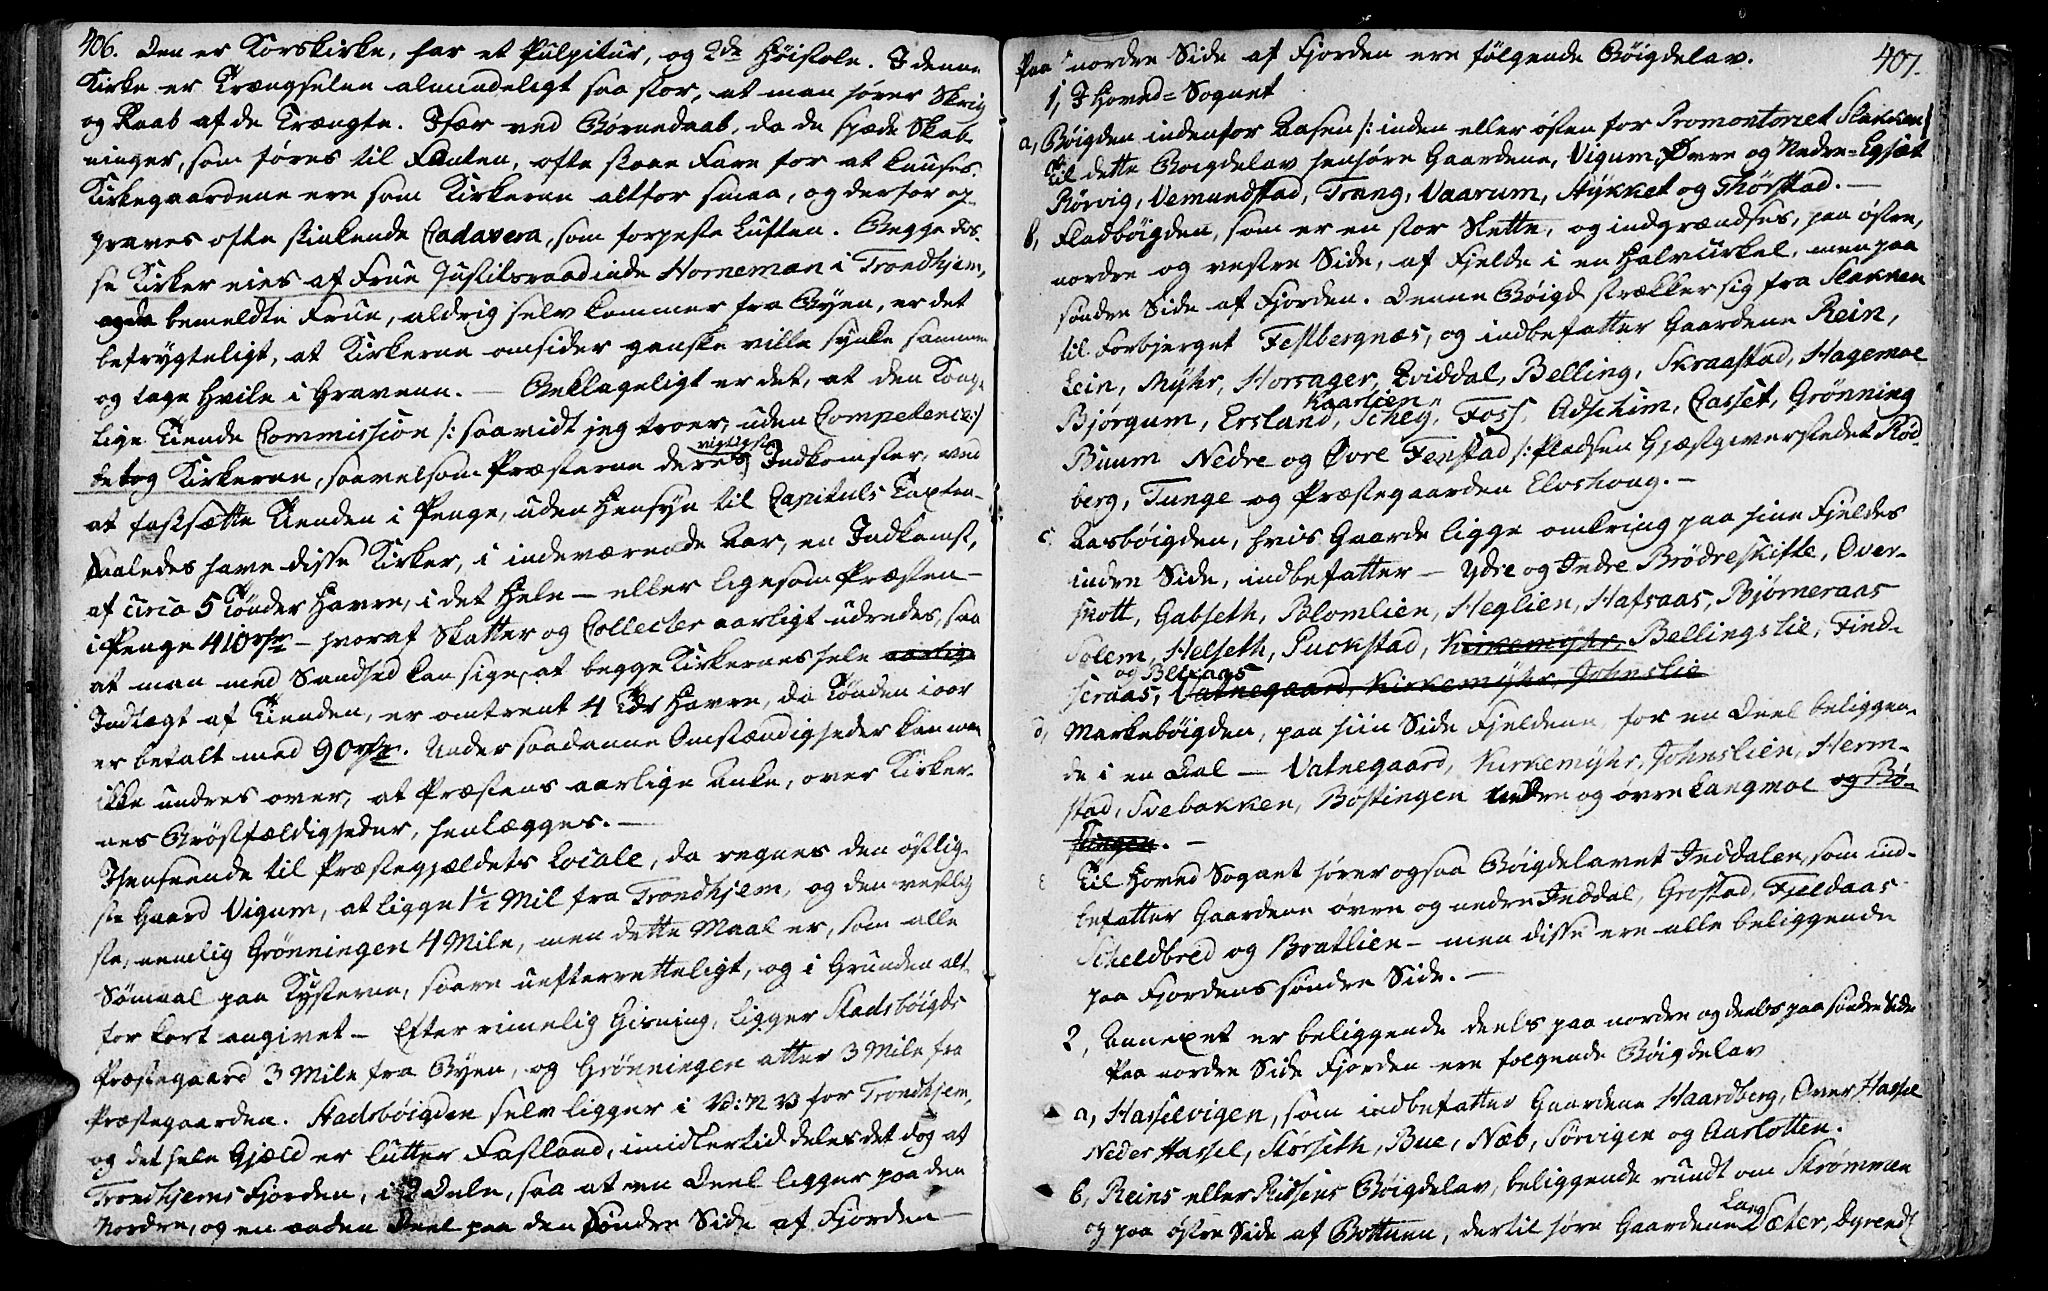 406. Den er Korskirke, har et Pulpitur, og 2de Høistole. I denne
Kirke er Trængselen almindeligt saa stor, at man hører Skrig
og Raab af de Trængte. Især ved Børnedaab, da de spæde Skab-
ninger, som føres til Fonten, ofte staae Fare for at knuses.
Kirkegaardene ere som Kirkerne altfor smaa, og derfor op-
graves ofte stinkende Cadavera, som forpeste Luften. Begge dis-
se Kirker eies af Frue Justitsraadinde Horneman i Trondhjem,
og da bemeldte Frue, aldrig selv kommer fra Byen, er det
befrygteligt, at Kirkerne omsider ganske ville synke sammen
og tage Hvile i Gravene. — Beklageligt er det, at den Konge-
lige Tiende Commission /: saavidt jeg troer, uden Competence :/
betog Kirkerne, saavelsom Præsterne deres vigtigste Indkomster, ved
at fastsætte Tienden i Penge, uden Hensyn til Capituls Taxten –
Saaledes have disse Kirker, i indeværende Aar, en Indkomst,
af circa 5 Tønder Havre, i det Hele – eller ligesom Præsten –
i Penge 410 rdr – hvoraf Skatter og Collecter aarligt udredes, saa
at man med Sandhed kan sige, at begge Kirkernes hele aarlig
Indtægt af Tienden, er omtrent 4 Tdr Havre, da Tønden i aar
er betalt med 90 rdr. Under saadanne Omstændigheder kan man
ikke undres over, at Præstens aarlige Anke, over Kirker-
nes Brøstfældigheder, henlægges. —
I henseende til Præstegjældets Locale, da regnes den østlig-
ste Gaard Vigum, at ligge 1½ Mil fra Trondhjem, og den vestlig
ste, nemlig Grønningen 4 Mile, men dette Maal er, som alle
Sømaal paa Kysterne, saare uefterretteligt, og i Grunden alt
for kort angivet – Efter rimelig Gisning, ligger Stadsbøigds
Præstegaard 3 Mile fra Byen, og Grønningen atter 3 Mile fra
Præstegaarden. Stadsbøigden selv ligger i V:N V for Trondhjem,
og det hele Gjæld er lutter Fastland, imidlertid deles det dog at
Trondhjems Fjorden, i 2 Dele, saa at en Deel ligger paa den
Nordre, og en anden Deel paa den Søndre Side af Fjorden —
407.
Paa nordre Side af Fjorden ere følgende Bøigdelav.
1, I Hoved=Sognet
a, Bøigden indenfor Aasen /: inden eller østen for Promontoriet Stakken /
Til dette Bøigdelav henhøre Gaardene, Vigum, Øvre og Nedre=Egsæt
Rørvig, Vemundstad, Trang, Vaarum, Stykket og Thørstad. —
b, Fladbøigden, som er en stor Slette, og indgrændses, paa østre,
nordre og vestre Side, af Fjelde i en Halvcirkel, men paa
søndre Side af Fjorden. Denne Bøigd strækker sig fra Stakken
til Forbjerget Festbergnæs, og indbefatter Gaardene Rein,
Lein, Myhr, Horsager, Qviddal, Belling, Skraastad, Hagemoe
Bjørgum, Ersland, Kaarlien, Schey, Foss, Adschim, Casset, Grønning
Buum Nedre og Øvre Fenstad /: Pladsen Gjæstgiverstedet Rød
berg, Tunge og Præstegaarden Elvshoug. –
c, Aasbøigden, hvis Gaarde ligge omkring paa hine Fjeldes
indre Side, indbefatter – Ydre og Indre Brødreskifte, Over-
skott, Gabseth, Blomlien, Heglien, Hafsaas, Bjørneraas
Solem, Helseth, Puckstad, Kirkemyhr, Bellingslie, Find-
seraas, og Blixaas Vatnegaard, Kirkemyhr, Johnslie
d, Markebøigden, paa hiin Side Fjeldene, for en Deel beliggen-
de i en Dal – Vatnegaard, Kirkemyhr, Johnslien, Herm-
stad, Svebakken, Bøstingen nedre og øvre Langmoe og Bø-
stingen. –
e Til Hoved Sognet hører ogsaa Bøigdelavet Inddalen, som ind-
befatter Gaardene øvre og nedre Inddal, Grostad, Fjeldaas
Scheldbred og Bratlien – men disse ere alle beliggende
paa Fjordens søndre Side. —
2, Annexet er beliggende deels paa nordre og deels paa søndre Side
Paa nordre Side Fjorden ere følgende Bøigdelav
a, Hasselvigen, som indbefatter Gaardene Haardberg, Over Hassel
Neder Hassel, Størseth, Bue, Næb, Sørvigen og Aarlotten.
b, Reins eller Rissens Bøigdelav, beliggende rundt om Strømmen
og paa østre Side af Bottnen, dertil høre Gaardene Lang Sæter, Byrend